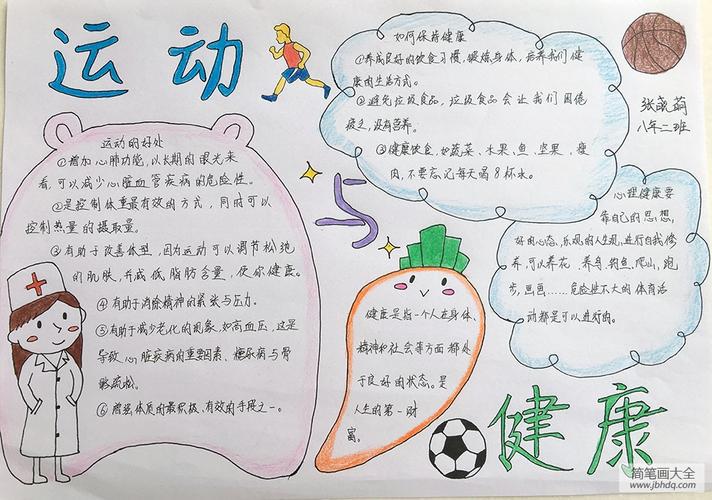 运动
与
健康
运动的好处
①增加心肺功能,以长期的眼光来
看,可以减少心脏血管疾病的危险性。
②是控制体重最有效的方式,同时可以
控制热量的摄取量。
③有助于改善体型,因为运动可以调节松弛
的肌肤,并减低脂肪含量,使你健康。
④有助于消除精神的紧张与压力。
⑤有助于减少老化的现象,如高血压,这是
导致心脏疾病的重要因素、糖尿病与骨
骼疏松。
⑥增强体质的最积极、有效的手段之一。
如何保持健康
①养成良好的饮食习惯,锻炼身体,培养我们健
康的生活方式。
②避免垃圾食品,垃圾食品会让我们困倦
疲乏,没有营养。
③健康饮食,如蔬菜、水果、鱼、坚果、瘦
肉,不要忘记每天喝8杯水。
张茵萌
八年二班
心理健康要
靠自己的思想,
好的心态、乐观的人生观,进行自我修
养,可以养花、养鸟、钓鱼、爬山、跑
步、画画……危险性不大的体育活
动都是可以进行的。
健康是指一个人在身体、
精神和社会等方面都处
于良好的状态。是
人生的第一财
富。
简笔画大全
www.jbhdq.com